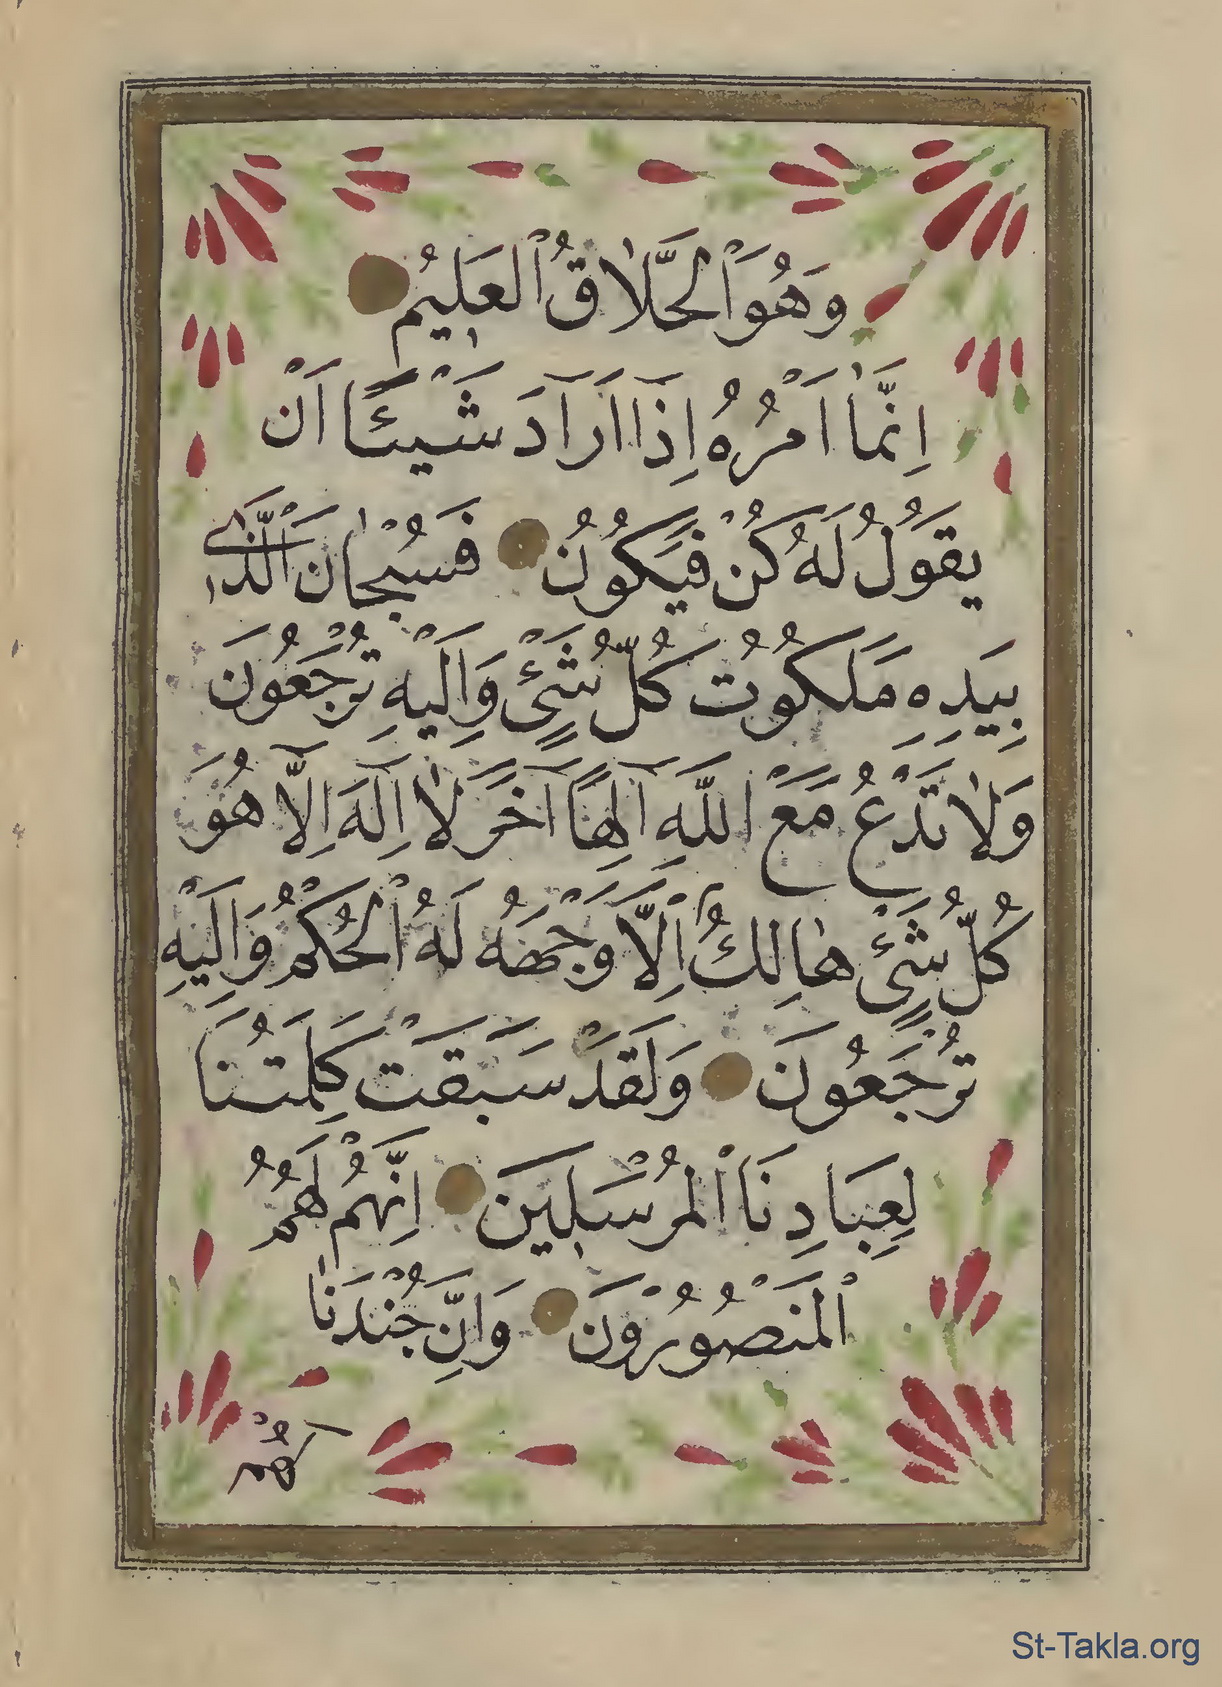 وَهُوَ ٱلْخَلَّاقُ ٱلْعَلِيمُ
اِنَّمَا اَمْرُهُ اِذَا اَرَادَ شَيْئًا اَنْ
يَقُولَ لَهُ كُنْ فَيَكُونُ فَسُبْحَانَ ٱلَّذِى
بِيَدِهِ مَلَكُوتُ كُلِّ شَيْءٍ وَاِلَيْهِ تُرْجَعُونَ
وَلَا تَدْعُ مَعَ اللَّهِ اِلٰهًا آخَرَ لَا اِلٰهَ اِلَّا هُوَ
كُلُّ شَيْءٍ هَالِكٌ اِلَّا وَجْهَهُ لَهُ ٱلْحُكْمُ وَاِلَيْهِ
تُرْجَعُونَ وَلَقَدْ سَبَقَتْ كَلِمَتُنَا
لِعِبَادِنَا ٱلْمُرْسَلِينَ اِنَّهُمْ لَهُمُ
ٱلْمَنْصُورُونَ وَاِنَّ جُنْدَنَا
لَهُمُ
St-Takla.org